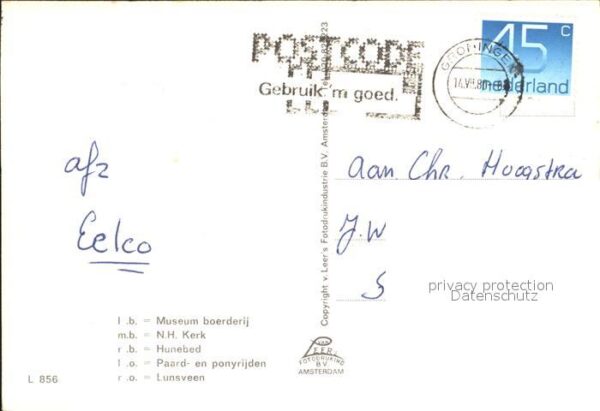 POSTCODE
Gebruik 'm goed.
GRONINGEN
14.VII.80
45 c
nederland
afz
Eelco
Aan Chr. Hoogstra
J.W
S
privacy protection
Datenschutz
Copyright v. Leer's Fotodrukindustrie B.V. Amsterdam
l.b. = Museum boerderij
m.b. = N.H. Kerk
r.b. = Hunebed
l.o. = Paard- en ponyrijden
r.o. = Lunsveen
L 856
VAN LEER
FOTODRUKIND
B.V.
AMSTERDAM